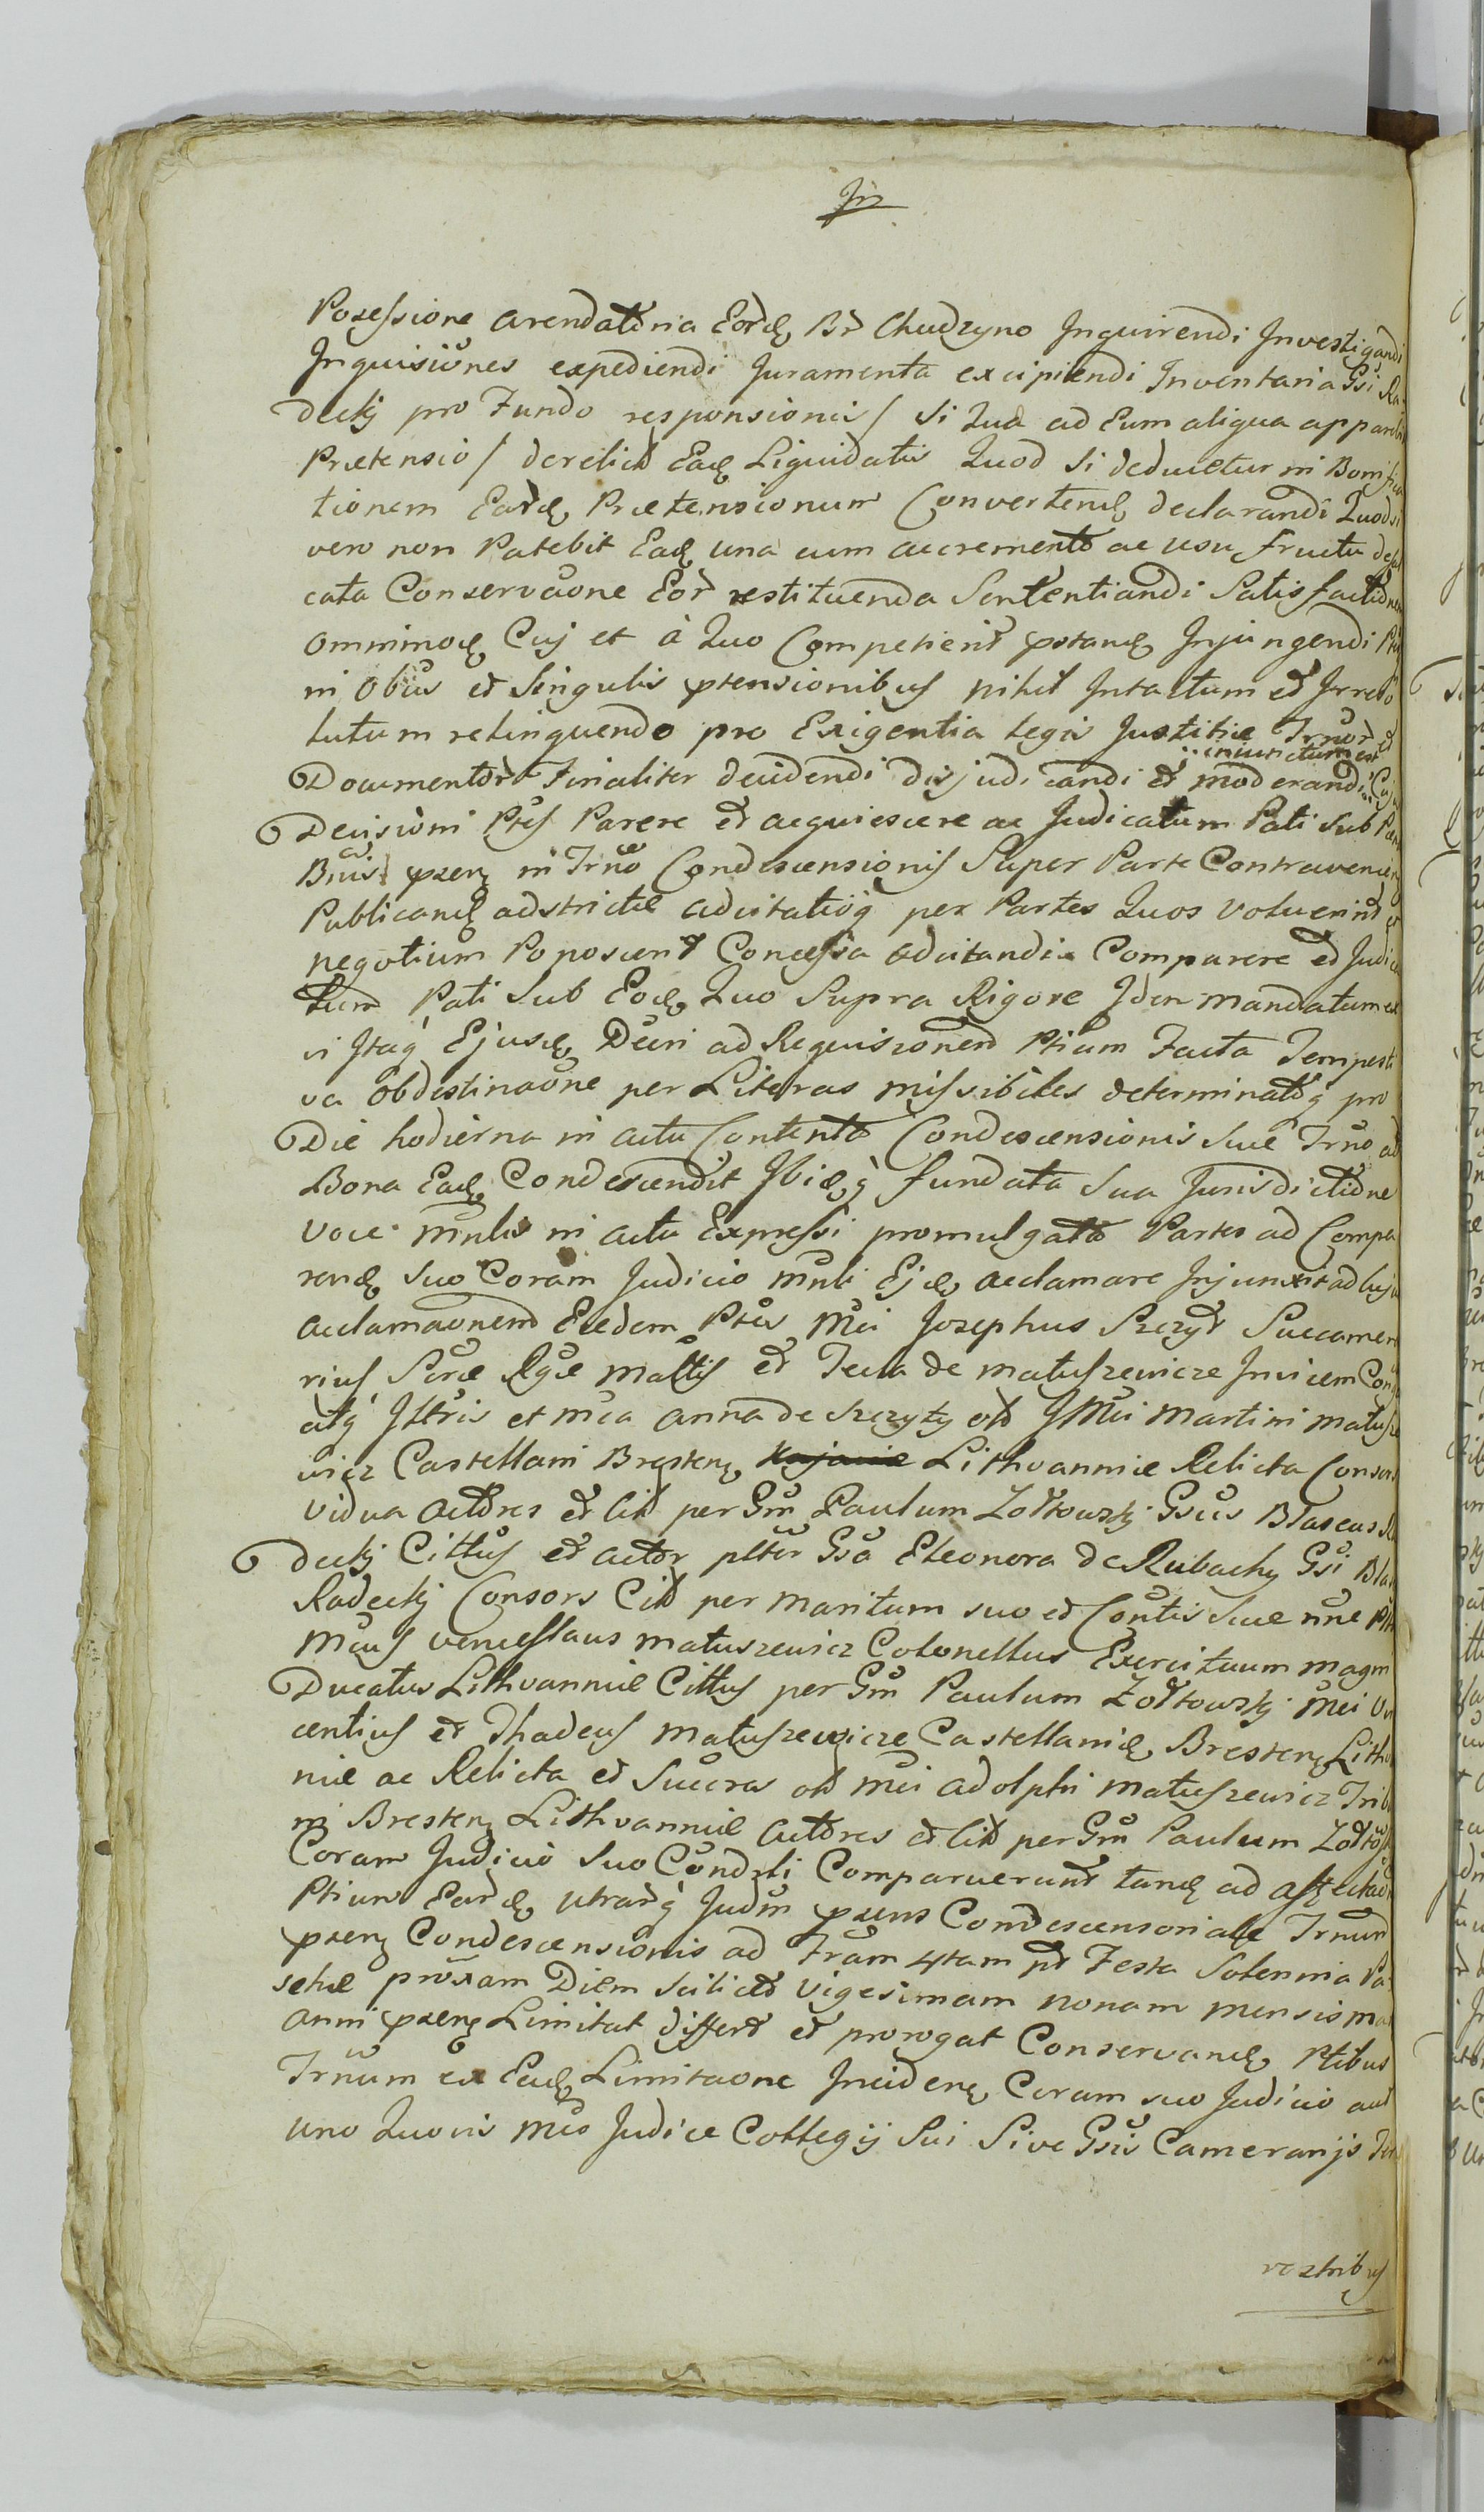 In
Posessione arendatoria Eord Br Chudzyno Inquirendi Investigandi
Inquisiones expediendi Juramenta excipiendi Inventaria Gsi Ra
decky pro Fundo responsionis / si Qua ad Eum aliqua apparebit
Prætensio / derelict Ead Liquidatis Quod si deducetur in Bonifica
tionem Eard Prætensionum Convertend declarandi Quodsi
vero non Patebit Ead una cum accremento ac usu fructu defal
cata Conservaone Eor restituenda Sententiandi Satisfactionem
omnimod Cuj et à Quo Competierit pstand Injungendi
in Obus et Singulis ptensionibus nihil Intactum et Irreso
lutum relinquendo pro Exigentia Legis Justitiæ Trnor et
iniunctum est
Documentor Finaliter decidendi disjudicandi et moderandi Cujus
Decisioni Ptes Parere et acquiescere ac Judicatum Pati Sub Pæna
Bnis pzen in Trno Condescensionis Super Parte Contravenien
Publicand adstrictæ adcitatisq per Partes Quos voluerint et
negotium Poposcerit Concessa adcitandi Comparere et Judica
tum Pati Sub Eod Quo Supra Rigore Iden mandatum est
vi Itaq Ejusd Decri ad Requisitionem Ptium Facta Tempesti
va obdestinaone per Literas missibiles determinatoq pro
Die hodierna in actu Contento Condescensionis Suæ Trno ad
Bona Ead Condescendit Ibidq fundata Sua Jurisdictione
voce mnlis in actu Expressi promulgato Partes ad Compa
rend suo Coram Judicio mnli Ejd acclamare Injunxit ad cujus
acclamaonem Eædem Ptes Mci Josephus Szczyt Succamera
rius Scræ Rgæ Mattis et Tecla de Matuszewicze Invicem Conjuges
atq Illris et mca Anna de Szczyty ol Illmi Martini Matusze
wicz Castellani Bresten Kujaviæ Lithvanniæ Relicta Consors
Vidua actores et cit per Gm Paulum Zołtowsky Gsus Blaseus Ra
decky Citlus et actor pltr Gsa Eleonora de Rubachy Gsi Blasei
Radecky Consors Cit per Maritum suo et Contis Suæ nne
Mcus Venceslaus Matuszewicz Colonellus Exercituum Magni
Ducatus Lithvanniæ Citlus per Gm Paulum Zołtowsky Mci Vin
centius et Thadeus Matuszewicze Castellanid Bresten Lithva
niæ ac Relicta et Succres ol Mci Adolphi Matuszewicz Tribu
ni Bresten Lithvanniæ actores et Cit per Gm Paulum
Coram Judicio Suo Condrli Comparuerunt tand ad affectaonem
Ptium Eard utrarq Judm pzens Condescensoriale Trnum
pzen Condescensionis ad Fram 4tam pt Festa Solennia Pa
schæ proxam Diem Scilicet Vigesimam nonam mensis
Anni pzen Limitat differt et prorogat Conservand Ptibus
Trnum ex Ead Limitaone Inciden Coram suo Judicio aut
uno Quovis Mco Judice Collegij Sui Sive Gsis Cameranjs